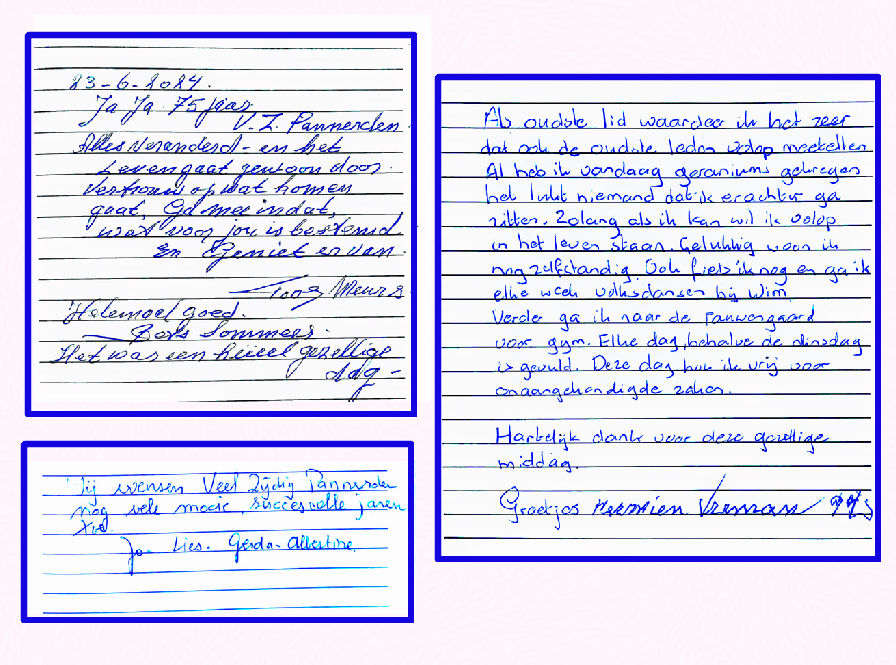 23-6-2024.
Ja Ja 75 jaar
V.Z. Pannerden.
Alles veranderd - en het
Leven gaat gewoon door.
Vertrouw op wat komen
gaat, Ga mee in dat,
wat voor jou is bestemd.
En Geniet ervan.
Toos Meurs
Helemaal goed.
Sommers.
Het was een heeel gezellige
dag -
Wij wensen Veel Zijdig Pannerden
nog vele mooie, succesvolle jaren
toe.
Jo - Lies - Gerda - Albertine
Als oudste lid waardeer ik het zeer
dat ook de oudste leden volop meetellen
Al heb ik vandaag geraniums gekregen
het lukt niemand dat ik erachter ga
zitten. Zolang als ik kan wil ik volop
in het leven staan. Gelukkig woon ik
nog zelfstandig. Ook fiets ik nog en ga ik
elke week volksdansen bij Wim.
Verder ga ik naar de Panwengaard
voor gym. Elke dag, behalve de dinsdag
is gevuld. Deze dag hou ik vrij voor
onaangekondigde zaken.
Hartelijk dank voor deze gezellige
middag.
Groetjes Hermien Vreman